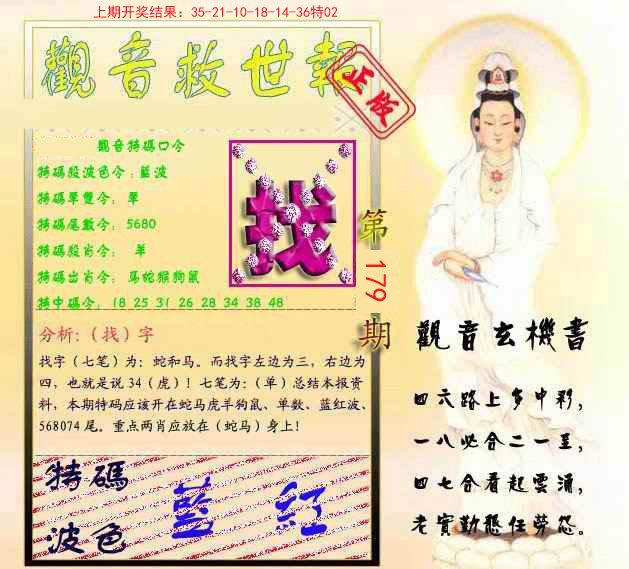 上期开奖结果: 35-21-10-18-14-36特02
觀音救世報
正版
觀音特碼口令
特碼殺波色令:藍波
特碼單雙令: 單
特碼尾數令: 5680
特碼殺肖令: 單
特碼出肖令: 馬蛇猴狗鼠
特中碼令: 18 25 31 26 28 34 38 48
找
第179期
分析:(找)字
找字(七笔)为: 蛇和马。而找字左边为三, 右边为
四, 也就是说 34(虎)! 七笔为:(单)总结本报资
料, 本期特码应该开在蛇马虎羊狗鼠、单数、蓝红波、
568074 尾。重点两肖应放在(蛇马)身上!
特碼
波色
藍 紅
觀音玄機書
四六路上多中彩,
一八必合二一至,
四七合看起雲涌,
老實勤懇任勞怨。